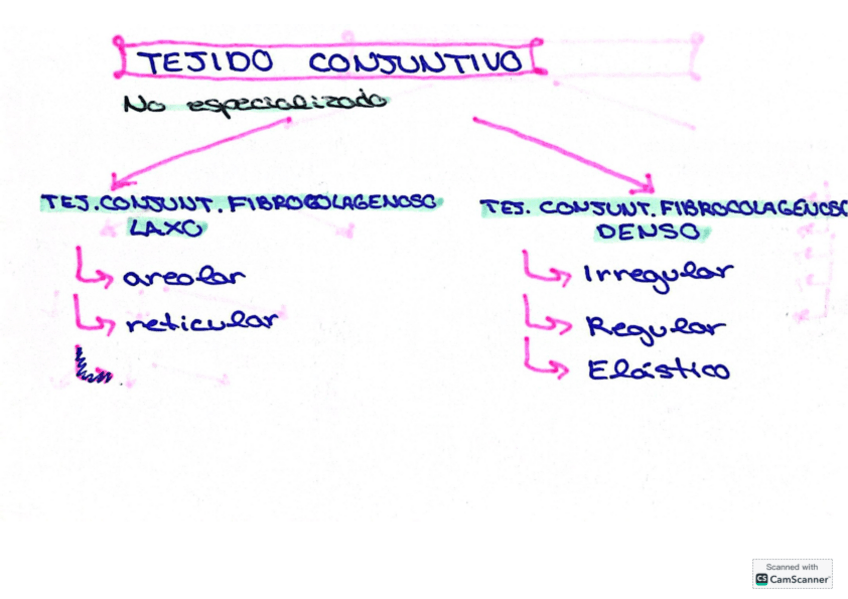 TEJIDO CONJUNTIVO
No especializado
TEJ.CONJUNT.FIBROCOLAGENOSO
LAXO
areolar
reticular
TEJ. CONJUNT.FIBROCOLAGENOSO
DENSO
Irregular
Regular
Elástico
Scanned with
CS CamScanner